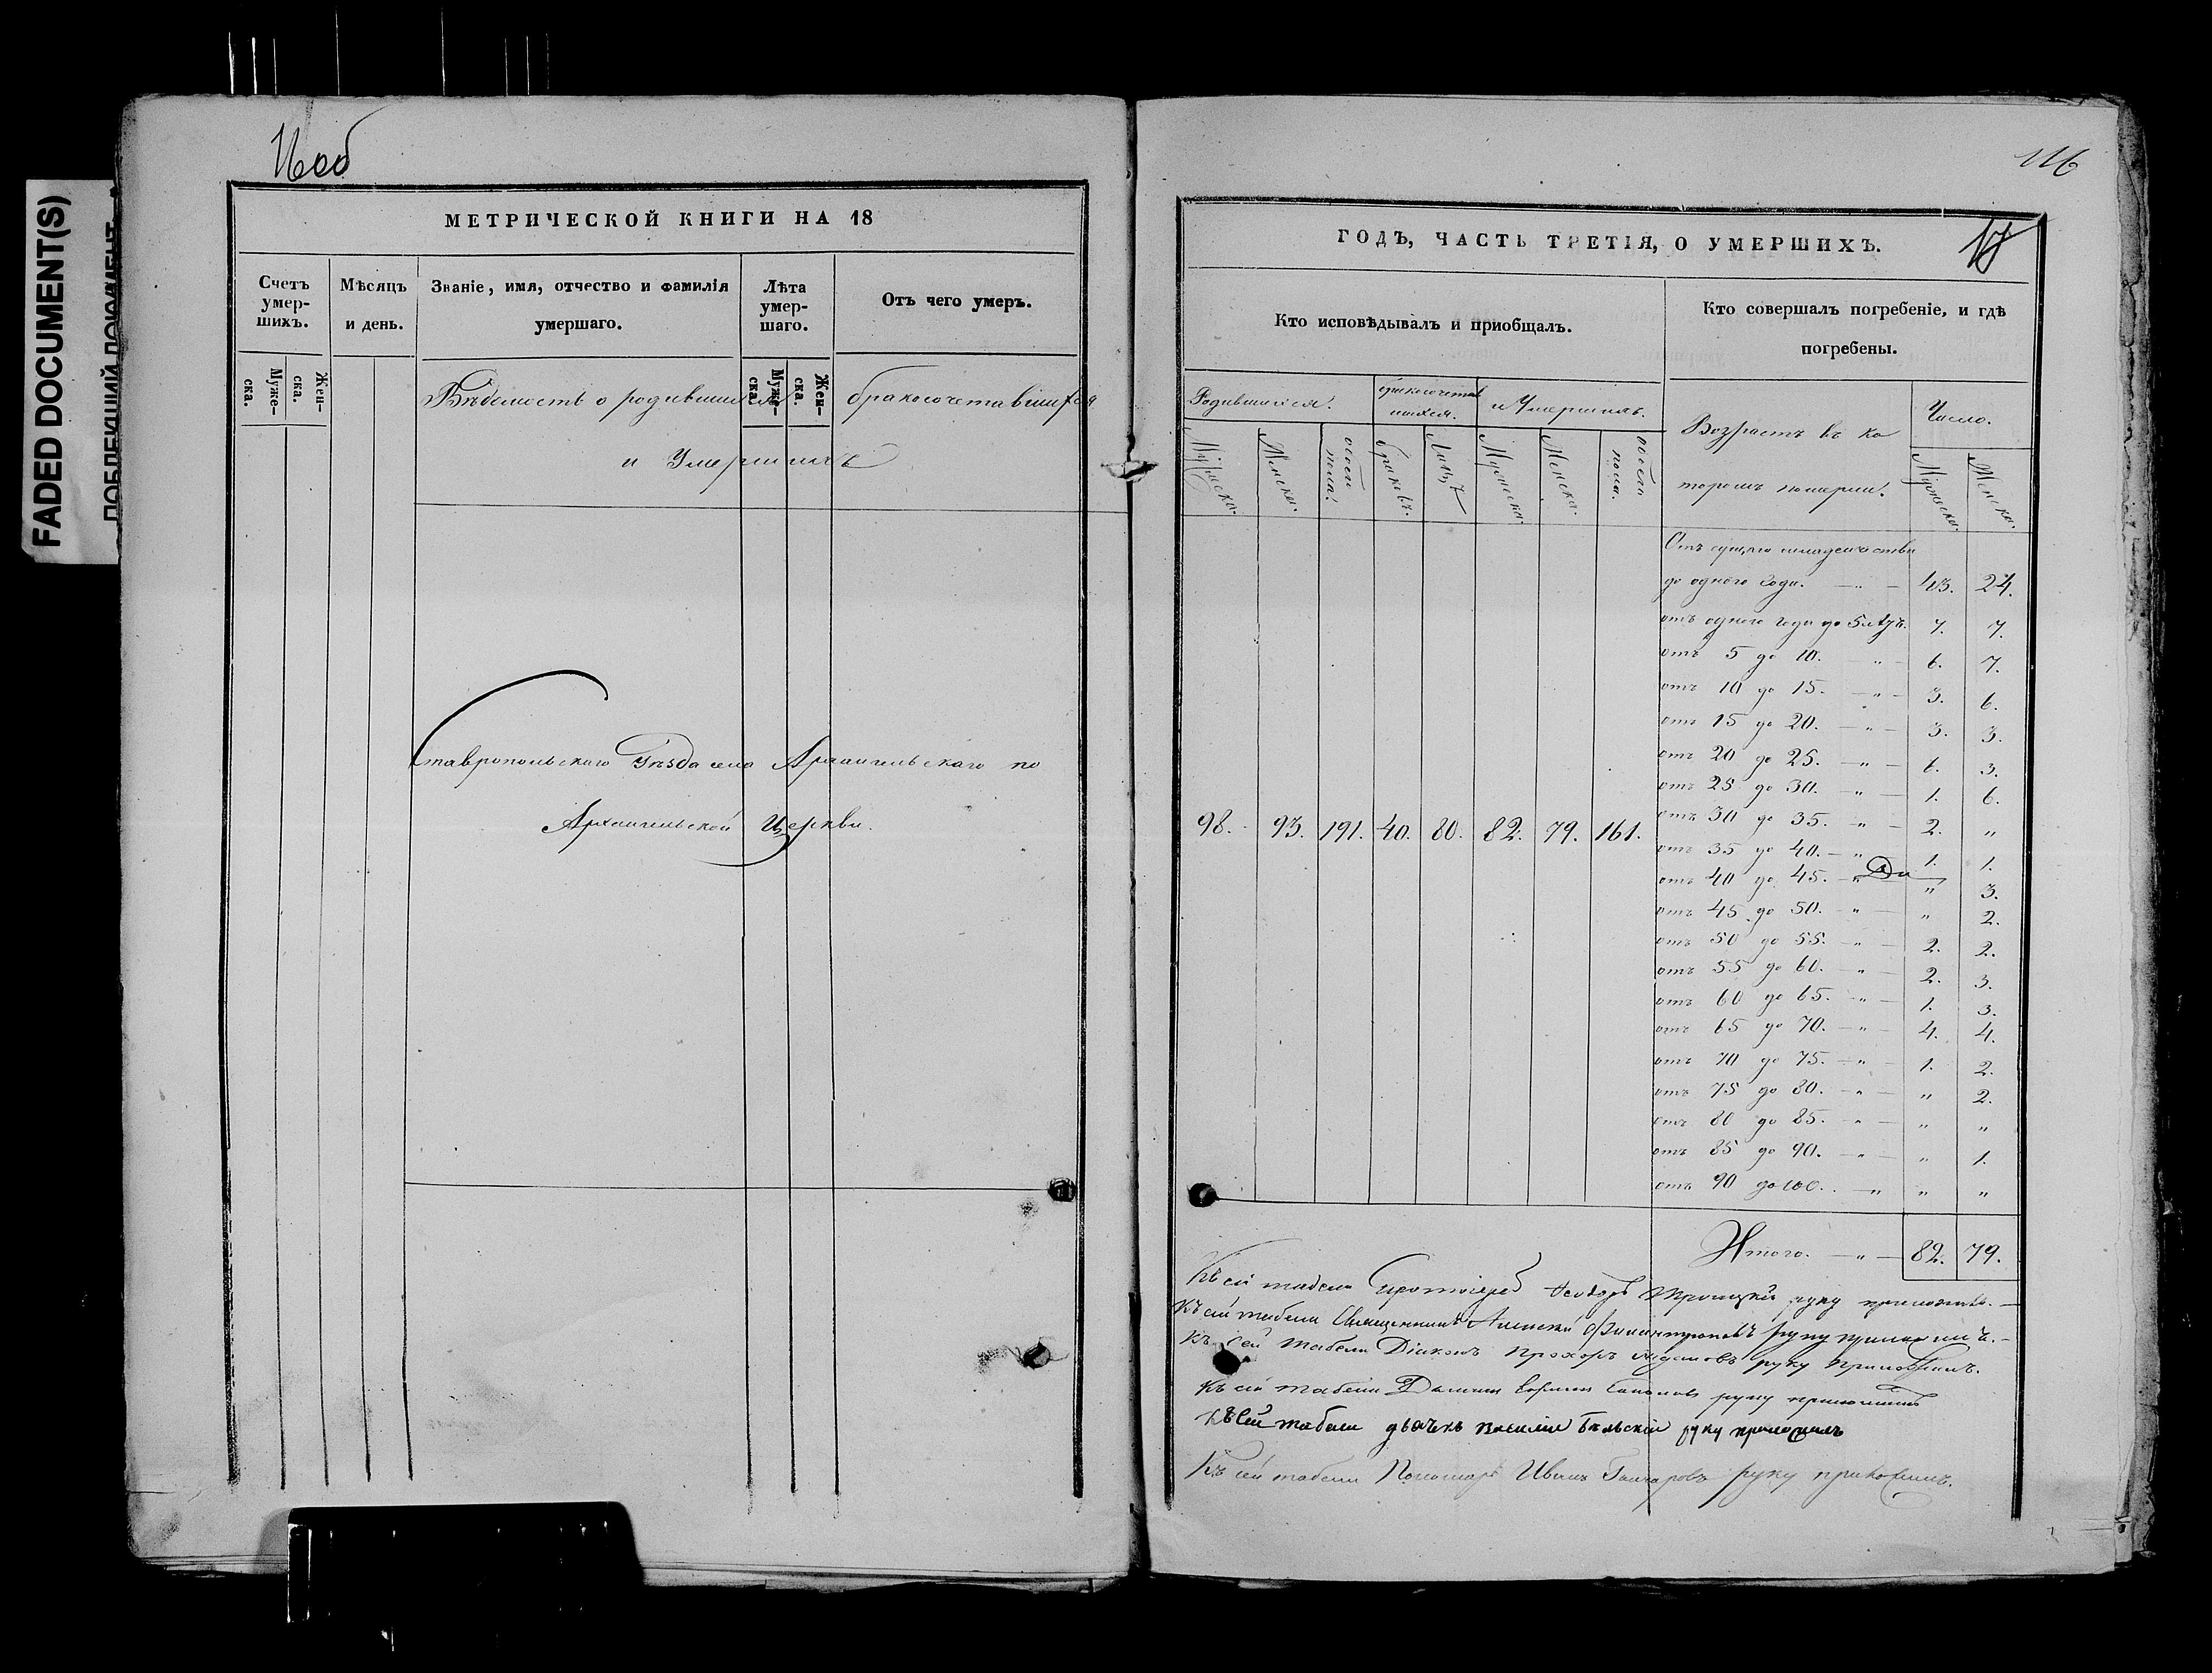 FADED DOCUMENT(S)
16об
МЕТРИЧЕСКОЙ КНИГИ НА 18
Счетъ умер-шихъ.
Муже-ска.
Жен-ска.
Мѣсяцъ и день.
Званіе, имя, отчество и фамилія умершаго.
Лѣта умер-шаго.
Муже-ска.
Жен-ска.
Отъ чего умеръ.
Вѣдомость о родившихся бракосочетавшихся
и Умершихъ
Ставропольскаго Уѣзда села Архангельскаго по
Архангельской Церкви.
116
17
ГОДЪ, ЧАСТЬ ТРЕТІЯ, О УМЕРШИХЪ.
Кто исповѣдывалъ и пріобщалъ.
Кто совершалъ погребеніе, и гдѣ погребены.
Родившихся.
бракосочетав
шихся.
и Умершихъ.
Возрастъ въ ко
торомъ померли.
Число.
Мужеска.
Женска.
обоего пола.
браковъ.
Лицъ
Мужеска.
Женска.
обоего пола.
Мужеска.
Женска.
98. 93. 191. 40. 80. 82. 79. 161.
Отъ сущаго младенчества
до одного года. — „ — 43. 24.
отъ одного года до 5 лѣтъ. 7. 7.
отъ 5 до 10. „ — 6. 7.
отъ 10 до 15. — „ — 3. 6.
отъ 15 до 20. — „ — 3. 3.
отъ 20 до 25. — „ — 6. 3.
отъ 25 до 30. — „ — 1. 6.
отъ 30 до 35. — „ — 2. „
отъ 35 до 40. — „ 1. 1.
отъ 40 до 45. — „ — „ 3.
отъ 45 до 50. — „ — „ 2.
отъ 50 до 55. — „ — 2. 2.
отъ 55 до 60. — „ — 2. 3.
отъ 60 до 65. — „ — 1. 3.
отъ 65 до 70. — „ — 4. 4.
отъ 70 до 75. — „ — 1. 2.
отъ 75 до 80. — „ — „ 2.
отъ 80 до 85. — „ — „ „
отъ 85 до 90. — „ — „ 1.
отъ 90 до 100. — „ „ „
Итого. — „ — 82. 79.
Къ сей табели Протоіерей Ѳеодоръ Троицкій руку приложилъ. —
Къ сей табели Священникъ Алексѣй Филантроповъ руку приложилъ. —
Къ сей табели Діаконъ Прохоръ руку приложилъ.
Къ сей табели руку приложилъ
Къ сей табели дьячекъ Василій Бѣльскій руку приложилъ
Къ сей табели Пономарь Иванъ Гончаровъ руку приложилъ.